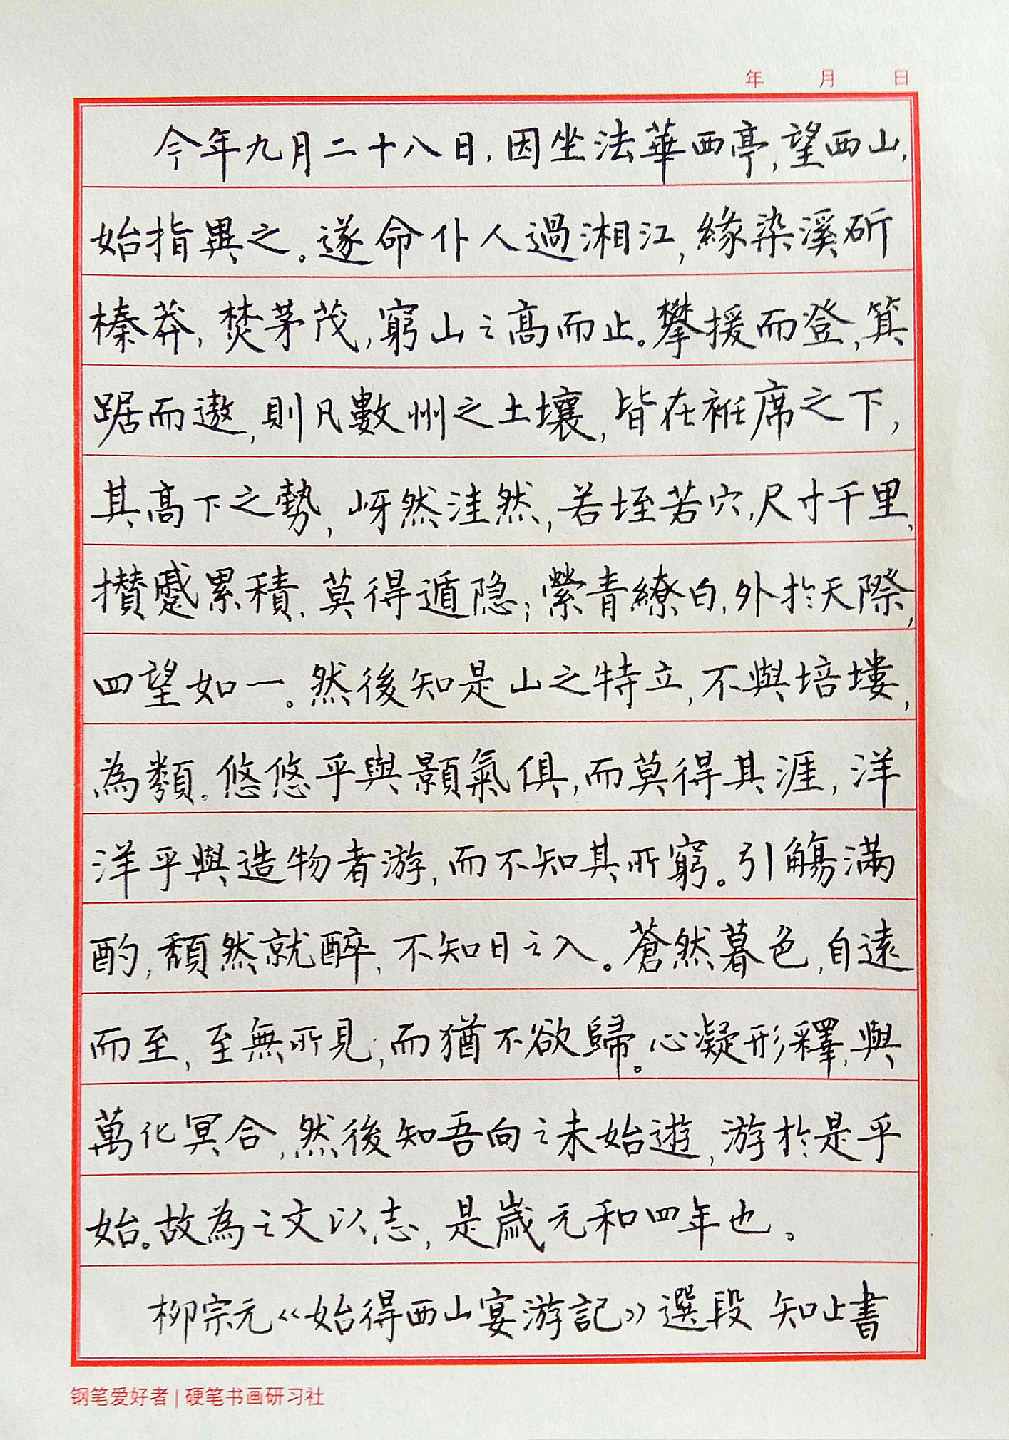 年 月 日
今年九月二十八日,因坐法華西亭,望西山,
始指異之。遂命仆人過湘江,緣染溪斫
榛莽,焚茅茂,窮山之高而止。攀援而登,箕
踞而遨,則凡數州之土壤,皆在衽席之下,
其高下之勢,岈然洼然,若垤若穴,尺寸千里,
攢蹙累積,莫得遁隐;縈青繚白,外於天際,
四望如一。然後知是山之特立,不與培塿,
為類。悠悠乎與顥氣俱,而莫得其涯,洋
洋乎與造物者游,而不知其所窮。引觴滿
酌,頹然就醉,不知日之入。蒼然暮色,自遠
而至,至無所見,而猶不欲歸。心凝形釋,與
萬化冥合,然後知吾向之未始遊,游於是乎
始。故為之文以志,是歲元和四年也。
柳宗元《始得西山宴游記》選段 知止書
钢笔爱好者|硬笔书画研习社